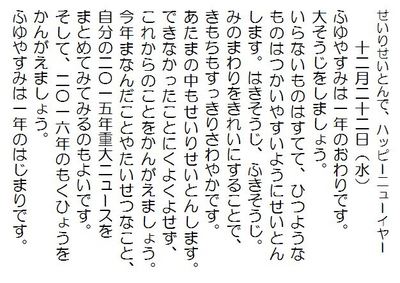 せいりせいとんで、ハッピーニューイヤー
十二月二十二日（水）
ふゆやすみは一年のおわりです。
大そうじをしましょう。
いらないものはすてて、ひつような
ものはつかいやすいようにせいとん
します。はきそうじ、ふきそうじ。
みのまわりをきれいにすることで、
きもちもすっきりさわやかです。
あたまの中もせいりせいとんします。
できなかったことにくよくよせず、
これからのことをかんがえましょう。
今年まなんだことやたいせつなこと、
自分の二〇一五年重大ニュースを
まとめてみてみるのもよいです。
そして、二〇一六年のもくひょうを
かんがえましょう。
ふゆやすみは一年のはじまりです。